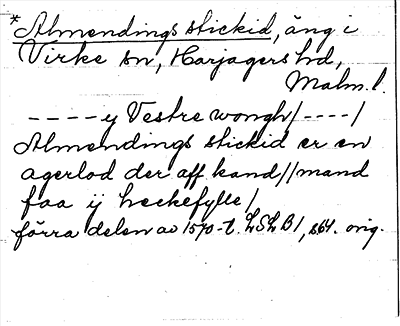 *Almendings stickid, äng i
Virke sn, Harjagers hd,
Malm. l.
----y Vestre wongh/----/
Almendings stickid er en
agerlod der aff kand//mand
faa ij heckefylle/
förra delen av 1570-t. LSLB1, s64. orig.